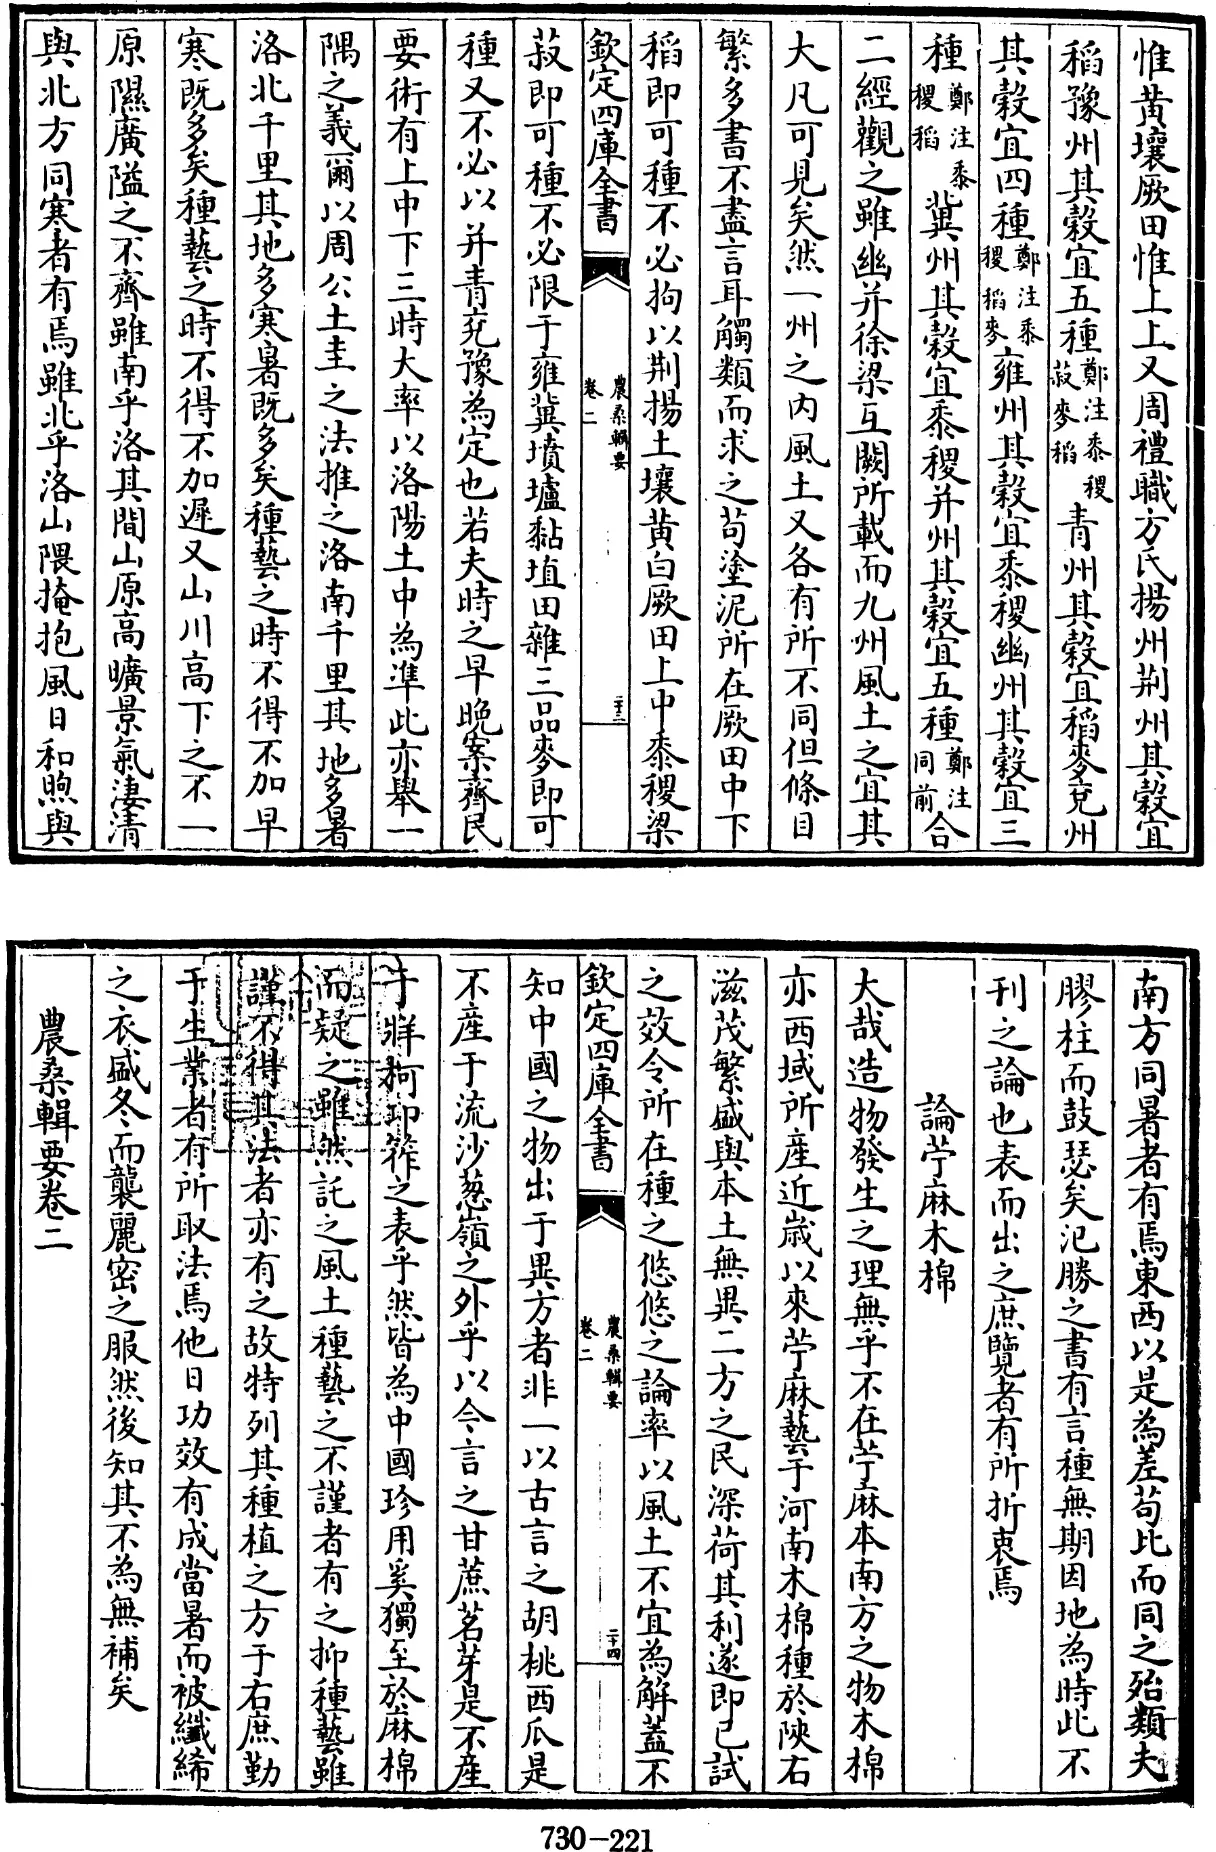 惟黄壤厥田惟上上又周禮職方氏揚州荆州其穀宜
稻豫州其穀宜五種鄭注黍稷菽麥稻青州其穀宜稻麥兖州
其穀宜四種鄭注黍稷稻麥雍州其穀宜黍稷幽州其穀宜三
種鄭注黍稷稻冀州其穀宜黍稷并州其穀宜五種鄭注同前合
二經觀之雖幽并徐梁互闕所載而九州風土之宜其
大凡可見矣然一州之内風土又各有所不同但條目
繁多書不盡言耳觸類而求之苟塗泥所在厥田中下
稻即可種不必拘以荆揚土壤黄白厥田上中黍稷梁
欽定四庫全書
農桑輯要
卷二
二十三
菽即可種不必限于雍冀墳壚黏埴田雜三品麥即可
種又不必以并青兖豫為定也若夫時之早晚案齊民
要術有上中下三時大率以洛陽土中為準此亦舉一
隅之義爾以周公土圭之法推之洛南千里其地多暑
洛北千里其地多寒暑既多矣種藝之時不得不加早
寒既多矣種藝之時不得不加遲又山川高下之不一
原隰廣隘之不齊雖南乎洛其間山原高曠景氣淒清
與北方同寒者有焉雖北乎洛山隈掩抱風日和煦與
南方同暑者有焉東西以是為差苟比而同之殆類夫
膠柱而鼓瑟矣氾勝之書有言種無期因地為時此不
刊之論也表而出之庶覽者有所折衷焉
論苧麻木棉
大哉造物發生之理無乎不在苧麻本南方之物木棉
亦西域所産近歲以來苧麻藝于河南木棉種於陜右
滋茂繁盛與本土無異二方之民深荷其利遂即已試
之效令所在種之悠悠之論率以風土不宜為解蓋不
欽定四庫全書
農桑輯要
卷二
二十四
知中國之物出于異方者非一以古言之胡桃西瓜是
不産于流沙葱嶺之外乎以今言之甘蔗茗芽是不産
于牂柯卭筰之表乎然皆為中國珍用奚獨至於麻棉
而疑之雖然託之風土種藝之不謹者有之抑種藝雖
謹不得其法者亦有之故特列其種植之方于右庶勤
于生業者有所取法焉他日功效有成當暑而被纖絺
之衣盛冬而襲麗密之服然後知其不為無補矣
農桑輯要卷二
730-221